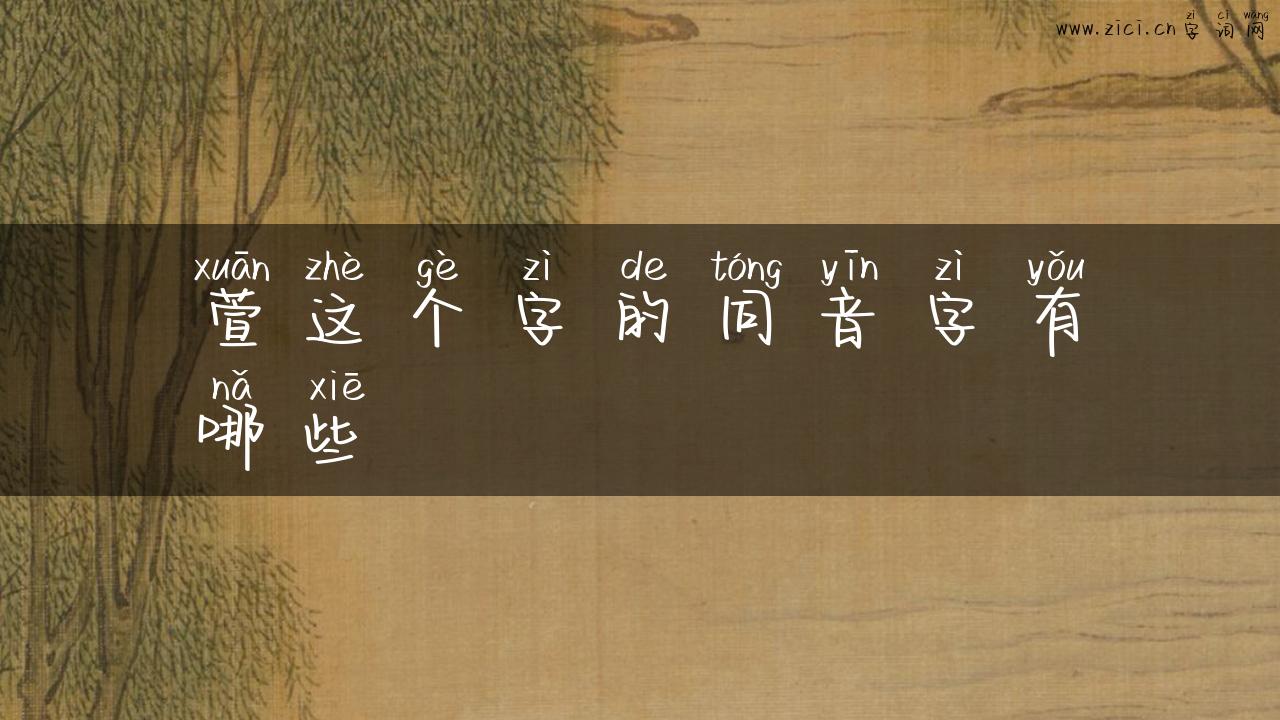 zì cí wǎng
www.zici.cn字词网
xuān zhè gè zì de tóng yīn zì yǒu
萱这个字的同音字有
nǎ xiē
哪些